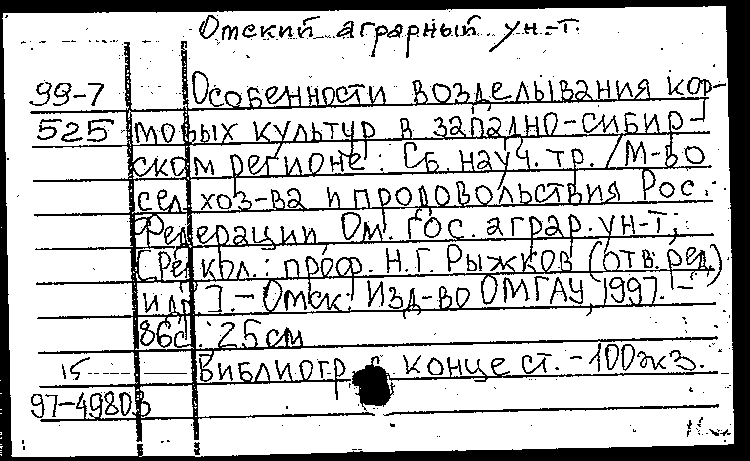 Омский аграрный ун-т.
99-7 Особенности возделывания кор-
525 мовых культур в западно-сибир-
ском регионе: Сб. науч. тр. / М-во
сел. хоз-ва и продовольствия Рос.
Федерации, Ом. гос. аграр. ун-т;
[Редкол.: проф. Н.Г. Рыжков (отв. ред.)
и др.]. - Омск: Изд-во ОМГАУ, 1997. -
86с.: 25см
15 Библиогр. в конце ст. - 100экз.
97-49803